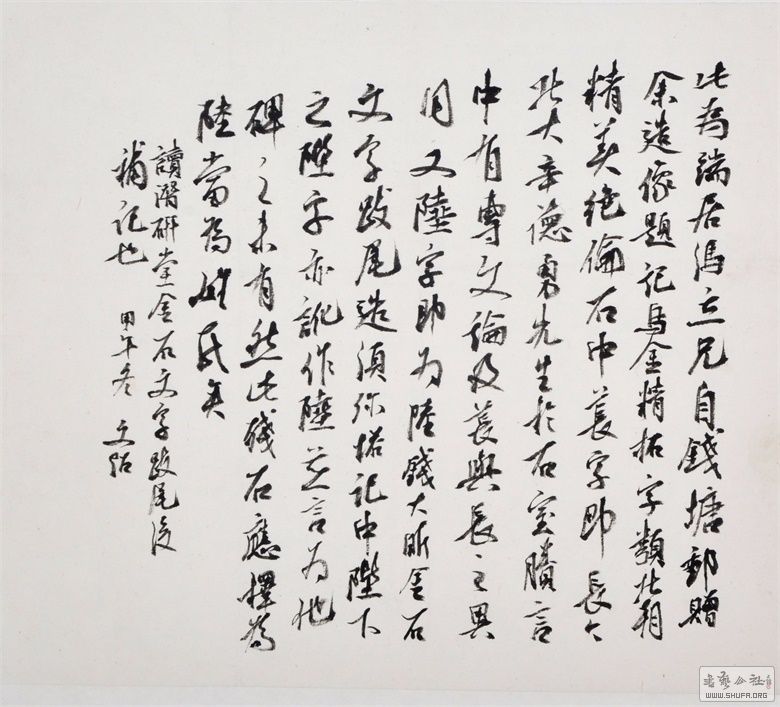 此為端居馮立兄自錢塘郵贈
余造像題記烏金精拓字類北朝
精美絕倫石中萇字即長々
北大辛德勇先生於石室賸言
中有專文論及萇與長之異
同又陸字即為陸錢大昕金石
文字跋尾造須彌塔記中陛下
之陛字亦訛作陸並言為他
碑之未有然此殘石應釋為
陸當為姓氏矣
讀潛研堂金石文字跋尾後
補記也 甲午冬 文
书艺公社
WWW.SHUFA.ORG